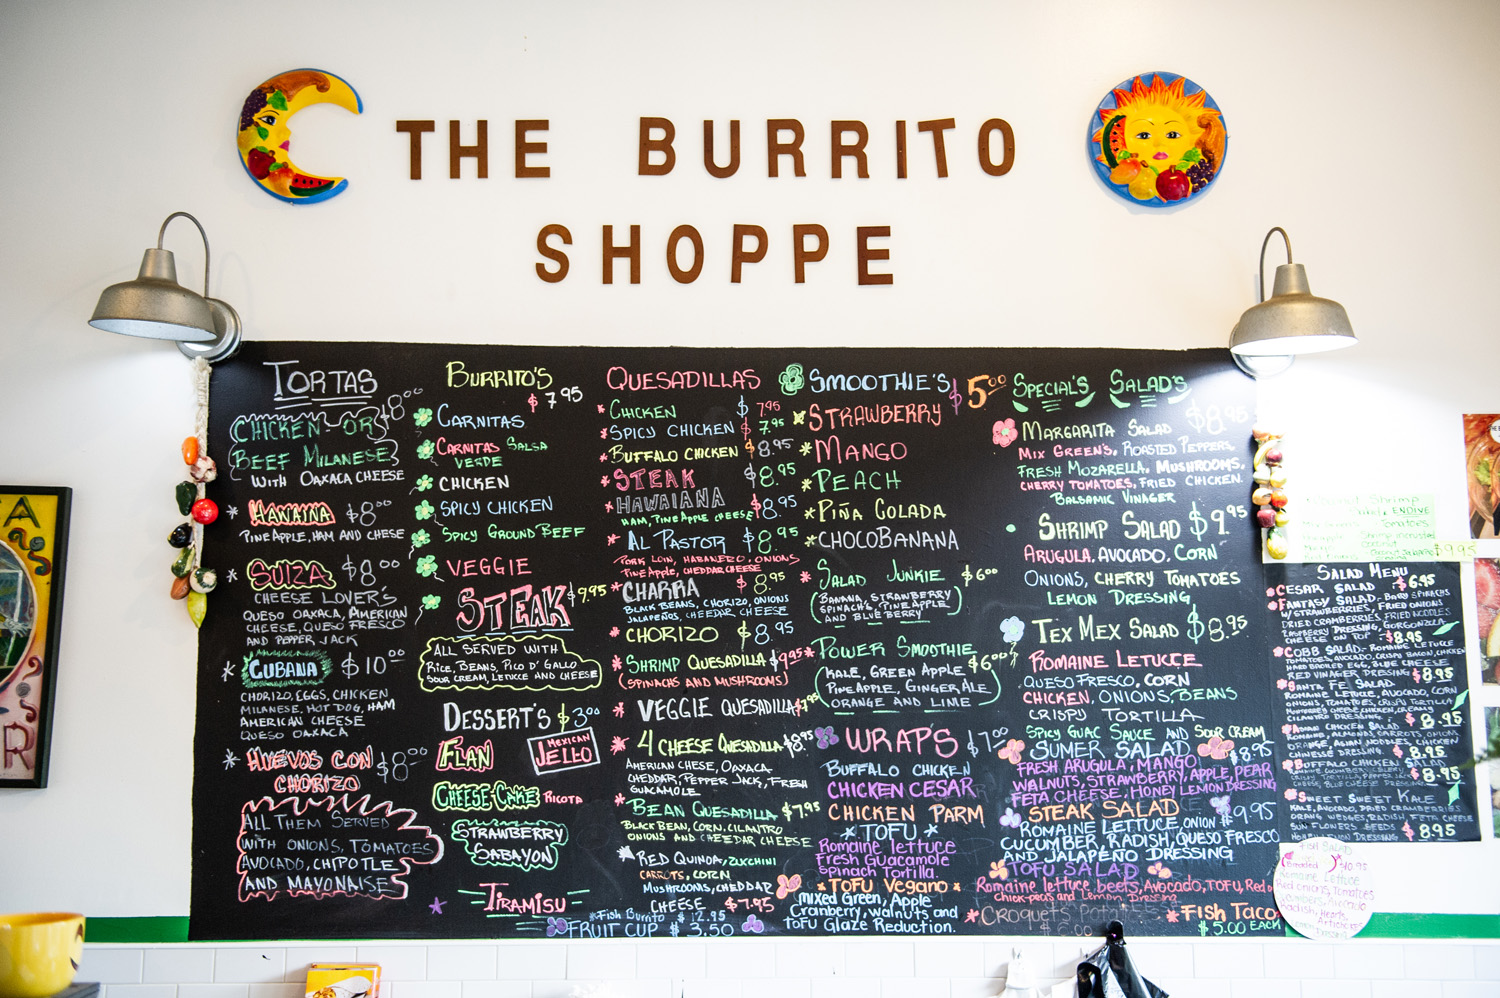 THE BURRITO
SHOPPE
TORTAS
CHICKEN OR $8.00
BEEF MILANESE
WITH OAXACA CHEESE
HAWAINA $8.00
PINE APPLE, HAM AND CHESE
SUIZA $8.00
CHEESE LOVER'S
QUESO OAXACA, AMERICAN
CHEESE, QUESO FRESCO
AND PEPPER JACK
CUBANA $10.00
CHORIZO, EGGS, CHICKEN
MILANESE, HOT DOG, HAM
AMERICAN CHEESE
QUESO OAXACA
HUEVOS CON $8.00
CHORIZO
ALL THEM SERVED
WITH ONIONS, TOMATOES
AVOCADO, CHIPOTLE
AND MAYONAISE
BURRITO'S
$7.95
CARNITAS
CARNITAS SALSA
VERDE
CHICKEN
SPICY CHICKEN
SPICY GROUND BEEF
VEGGIE
STEAK $9.95
ALL SERVED WITH
RICE, BEANS, PICO D' GALLO
SOUR CREAM, LETUCE AND CHEESE
DESSERT'S $3.00
FLAN MEXICAN
JELLO
CHEESE CAKE RICOTA
STRAWBERRY
SABAYON
TIRAMISU
FISH BURRITO $12.95
FRUIT CUP $3.50
QUESADILLAS
CHICKEN $7.95
SPICY CHICKEN $7.95
BUFFALO CHICKEN $8.95
STEAK $8.95
HAWAIANA $8.95
HAM, PINE APPLE CHEESE
AL PASTOR $8.95
PORK LOIN, HABANERO, ONIONS
PINE APPLE, CHEDDAR CHEESE
CHARRA $8.95
BLACK BEANS, CHORIZO, ONIONS
JALAPEÑOS, CHEEDAR CHEESE
CHORIZO $8.95
SHRIMP QUESADILLA $9.95
(SPINACHS AND MUSHROOMS)
VEGGIE QUESADILLA $7.95
4 CHEESE QUESADILLA $8.95
AMERICAN CHESE, OAXACA
CHEDDAR, PEPPER JACK, FRESH
GUACAMOLE
BEAN QUESADILLA $7.95
BLACK BEAN, CORN, CILANTRO
ONIONS AND CHEEDAR CHEESE
RED QUINOA, ZUKCHINI
CARROTS, CORN
MUSHROOMS, CHEDDAR
CHEESE $7.95
SMOOTHIE'S $5.00
STRAWBERRY
MANGO
PEACH
PIÑA COLADA
CHOCOBANANA
SALAD JUNKIE $6.00
(BANANA, STRAWBERRY
SPINACHS, PINE APPLE
AND BLUE BERRY)
POWER SMOOTHIE $6.00
(KALE, GREEN APPLE
PINE APPLE, GINGER ALE
ORANGE AND LIME)
WRAP'S $7.00
BUFFALO CHICKEN
CHICKEN CESAR
CHICKEN PARM
TOFU
Romaine lettuce
Fresh Guacamole
Spinach Tortilla.
TOFU VEGANO
mixed Green, Apple
Cranberry, walnuts and
ToFu Glaze Reduction.
SPECIAL'S SALAD'S
$8.95
MARGARITA SALAD
MIX GREEN'S, ROASTED PEPPERS,
FRESH MOZARELLA, MUSHROOMS,
CHERRY TOMATOES, FRIED CHICKEN.
BALSAMIC VINAGER
SHRIMP SALAD $9.95
ARUGULA, AVOCADO, CORN
ONIONS, CHERRY TOMATOES
LEMON DRESSING
TEX MEX SALAD $8.95
ROMAINE LETUCCE
QUESO FRESCO, CORN
CHICKEN, ONIONS, BEANS
CRISPY TORTILLA
SPICY GUAC SAUCE AND SOUR CREAM
SUMER SALAD $8.95
FRESH ARUGULA, MANGO
WALNUTS, STRAWBERRY, APPLE, PEAR
FETA CHEESE, HONEY LEMON DRESSING
STEAK SALAD $9.95
ROMAINE LETTUCE, ONION
CUCUMBER, RADISH, QUESO FRESCO
AND JALAPEÑO DRESSING
TOFU SALAD
Romaine lettuce, beets, Avocado, TOFU, Red
Chick-peas and Lemon Dressing
CROQUETS POTATOES
6.00
FISH TACO
$5.00 EACH
Shrimp
ENDIVE
Tomatoes
$9.95
SALAD MENU
CESAR SALAD $6.95
FANTASY SALAD - BABY SPINACHS
W/STRAWBERRIES, FRIED ONIONS
DRIED CRAMBERRIES, FRIED NOODLES
RASPBERRY DRESSING, GORGONZOLA
CHEESE ON TOP $8.95
COBB SALAD - ROMAINE LETUCE
TOMATOES, AVOCADO, CRISPY BACON, CHICKEN
HARD BOILED EGG, BLUE CHEESE
RED VINAGER DRESSING $8.95
SANTA FE SALAD
ROMAINE LETUCE, AVOCADO, CORN
ONIONS, TOMATOES, CRISPY TORTILLA
MONTEREY CHEESE, CHICKEN, CREAMY
CILANTRO DRESSING $8.95
CHICKEN SALAD
ROMAINE, ALMONDS, CARROTS, ONION
ORANGE, ASIAN NOODLES, CHICKEN
CHINESSE DRESSING $8.95
BUFFALO CHICKEN SALAD
$8.95
SWEET SWEET KALE
KALE, AVOCADO, DRIED CRAMBERRIES
ORANG WEDGES, RADISH FETA CHEESE
SUN FLOWERS SEEDS $8.95
FISH SALAD
Breaded $10.95
Romaine Lettuce
Red onions, Tomatoes
Cucumbers, Avocado
Radish, Hearts
Artichokes
Dressing